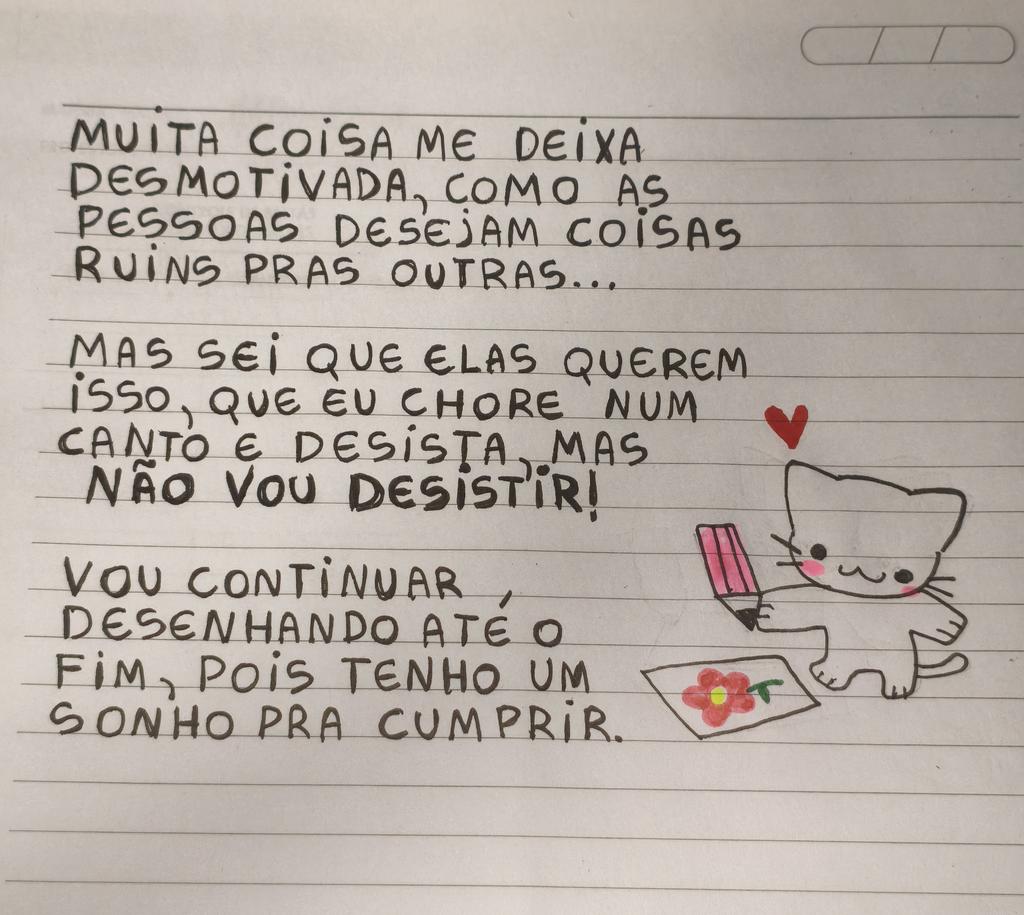 MUITA COISA ME DEIXA
DESMOTIVADA, COMO AS
PESSOAS DESEJAM COISAS
RUINS PRAS OUTRAS...
MAS SEI QUE ELAS QUEREM
ISSO, QUE EU CHORE NUM
CANTO E DESISTA, MAS
NÃO VOU DESISTIR!
VOU CONTINUAR
DESENHANDO ATÉ O
FIM, POIS TENHO UM
SONHO PRA CUMPRIR.